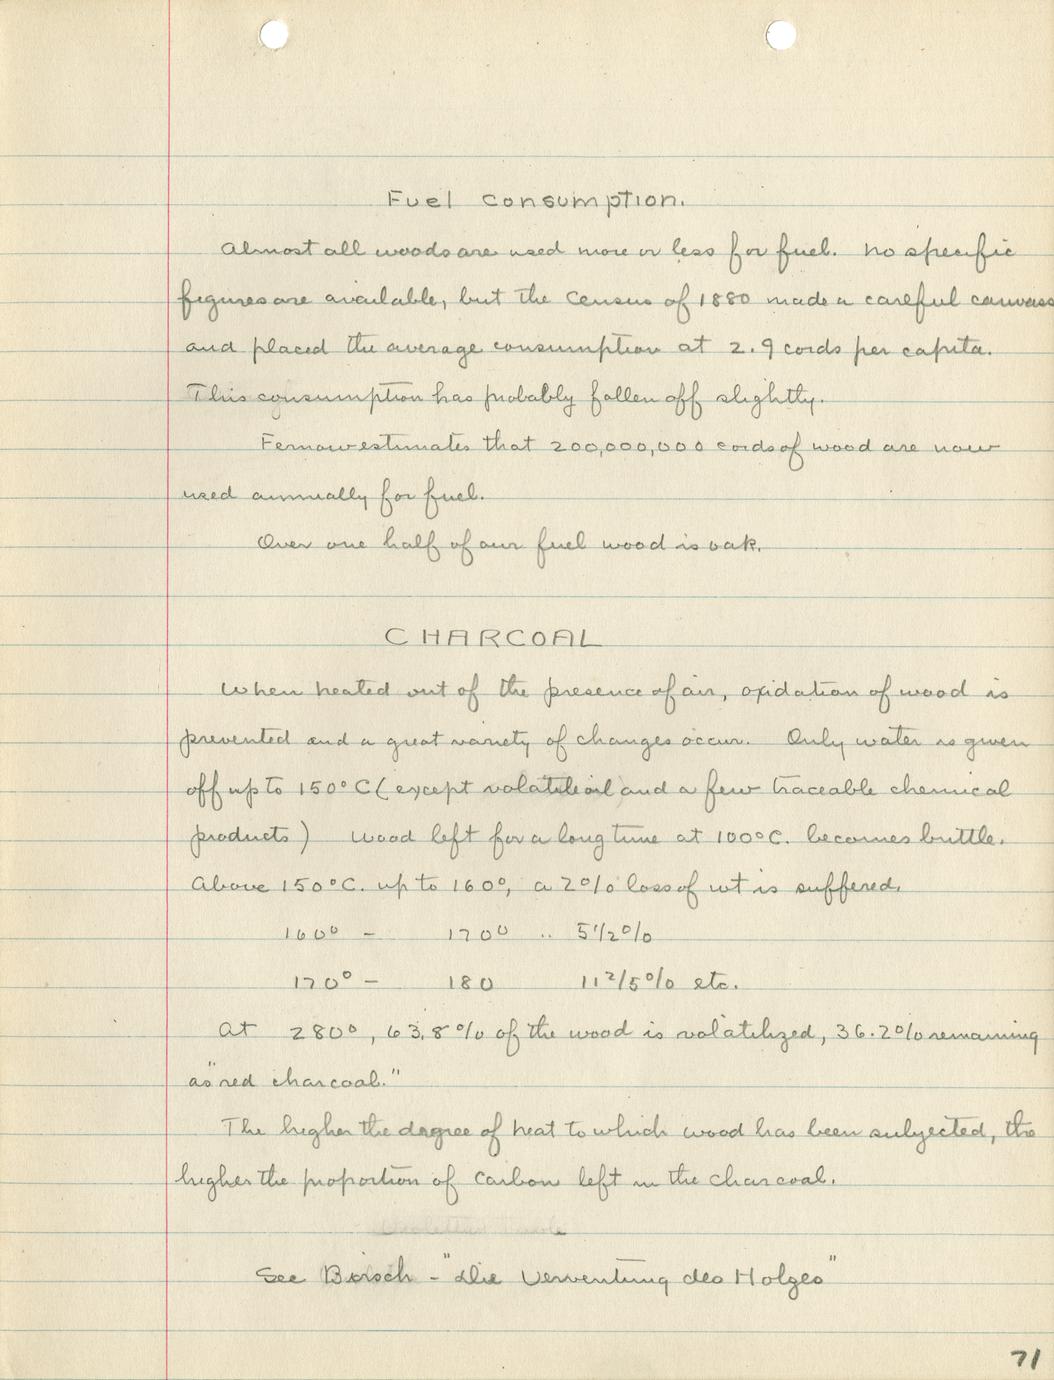 Fuel Consumption.
Almost all woods are used more or less for fuel. No specific
figures are available, but the Census of 1880 made a careful canvass
and placed the average consumption at 2.9 cords per capita.
This consumption has probably fallen off slightly.
Fernow estimates that 200,000,000 cords of wood are now
used annually for fuel.
Over one half of our fuel wood is oak.
CHARCOAL
When heated out of the presence of air, oxidation of wood is
prevented and a great variety of changes occur. Only water is given
off up to 150°C (except volatile oil and a few traceable chemical
products) Wood left for a long time at 100°C. becomes brittle.
Above 150°C. up to 160°, a 2% loss of wt is suffered.
160° - 170° .. 5 1/2%
170° - 180 11 2/5% etc.
At 280°, 63.8% of the wood is volatilized, 36.2% remaining
as "red charcoal."
The higher the degree of heat to which wood has been subjected, the
higher the proportion of carbon left in the charcoal.
See Bersch - "Die Verwentung des Holzes"
71